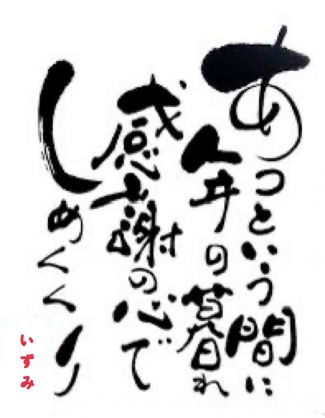 あっという間に
年の暮れ
感謝の心で
しめくくり
いずみ